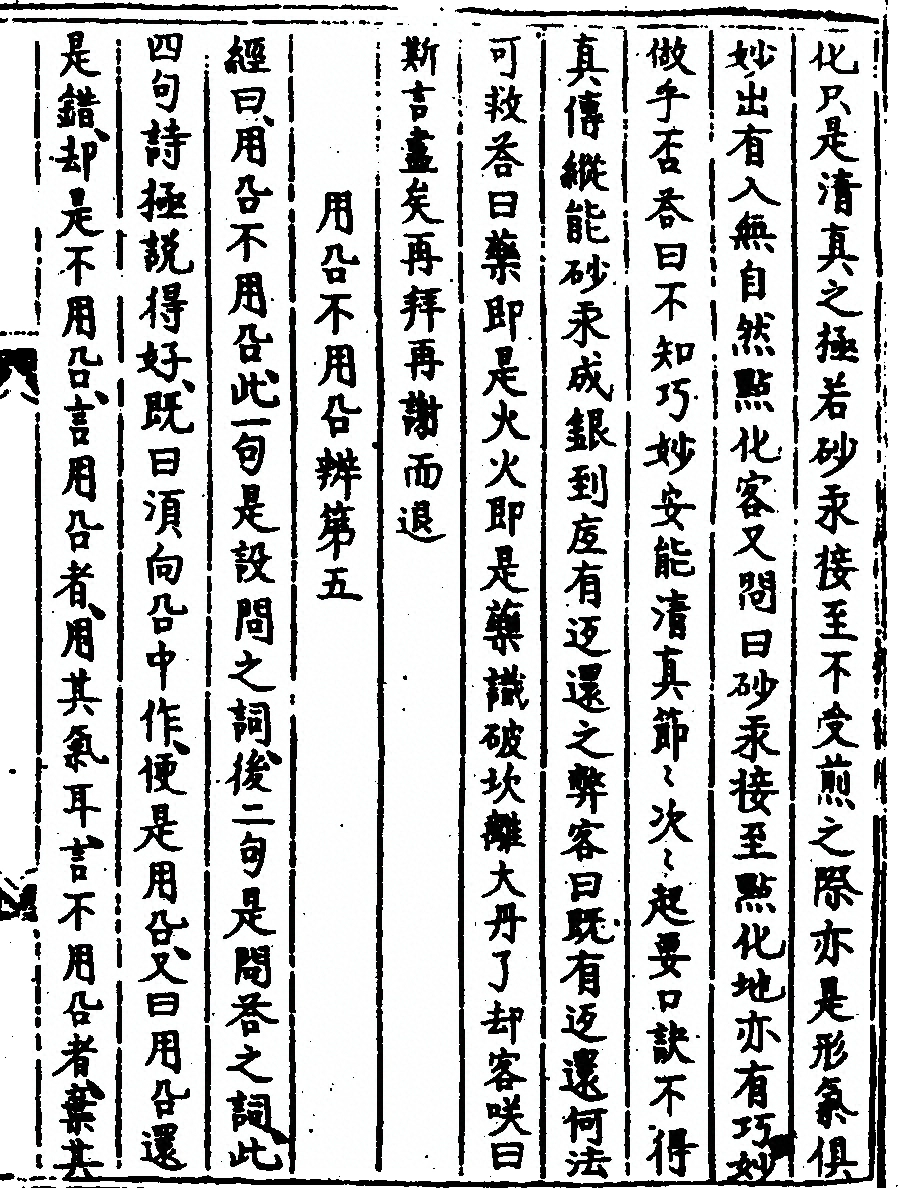 化只是清真之極若砂汞接至不受煎之際亦是形氣俱
妙出有入無自然點化客又問曰砂汞接至點化地亦有巧妙
做乎否荅曰不知巧妙安能清真節〻次〻起要口訣不得
真傳縱能砂汞成銀到底有返還之弊客曰既有返還何法
可救荅曰藥即是火火即是藥識破坎離大丹了却客咲曰
斯言盡矣再拜再謝而退
用鈆不用鈆辨第五
經曰用鈆不用鈆此一句是設問之詞後二句是問荅之詞此
四句詩極說得好既曰須向鈆中作便是用鈆又曰用鈆還
是錯却是不用鈆言用鈆者用其氣耳言不用鈆者棄其